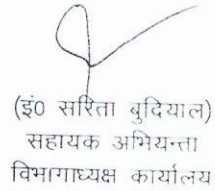 (इं0 सरिता बुदियाल)
सहायक अभियन्ता
विभागाध्यक्ष कार्यालय